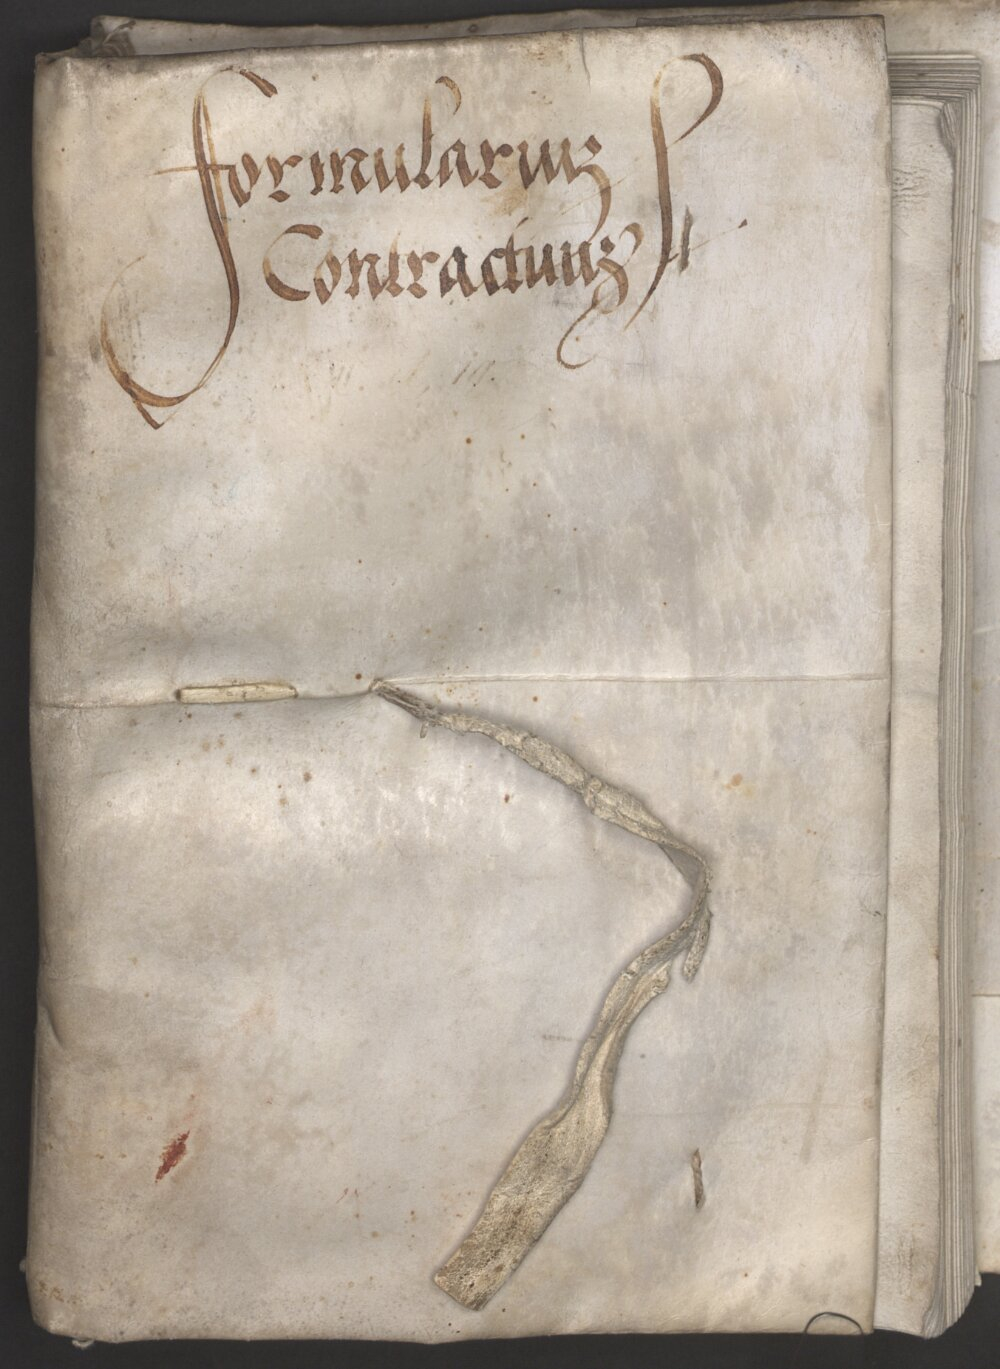 formularium
Contractuum